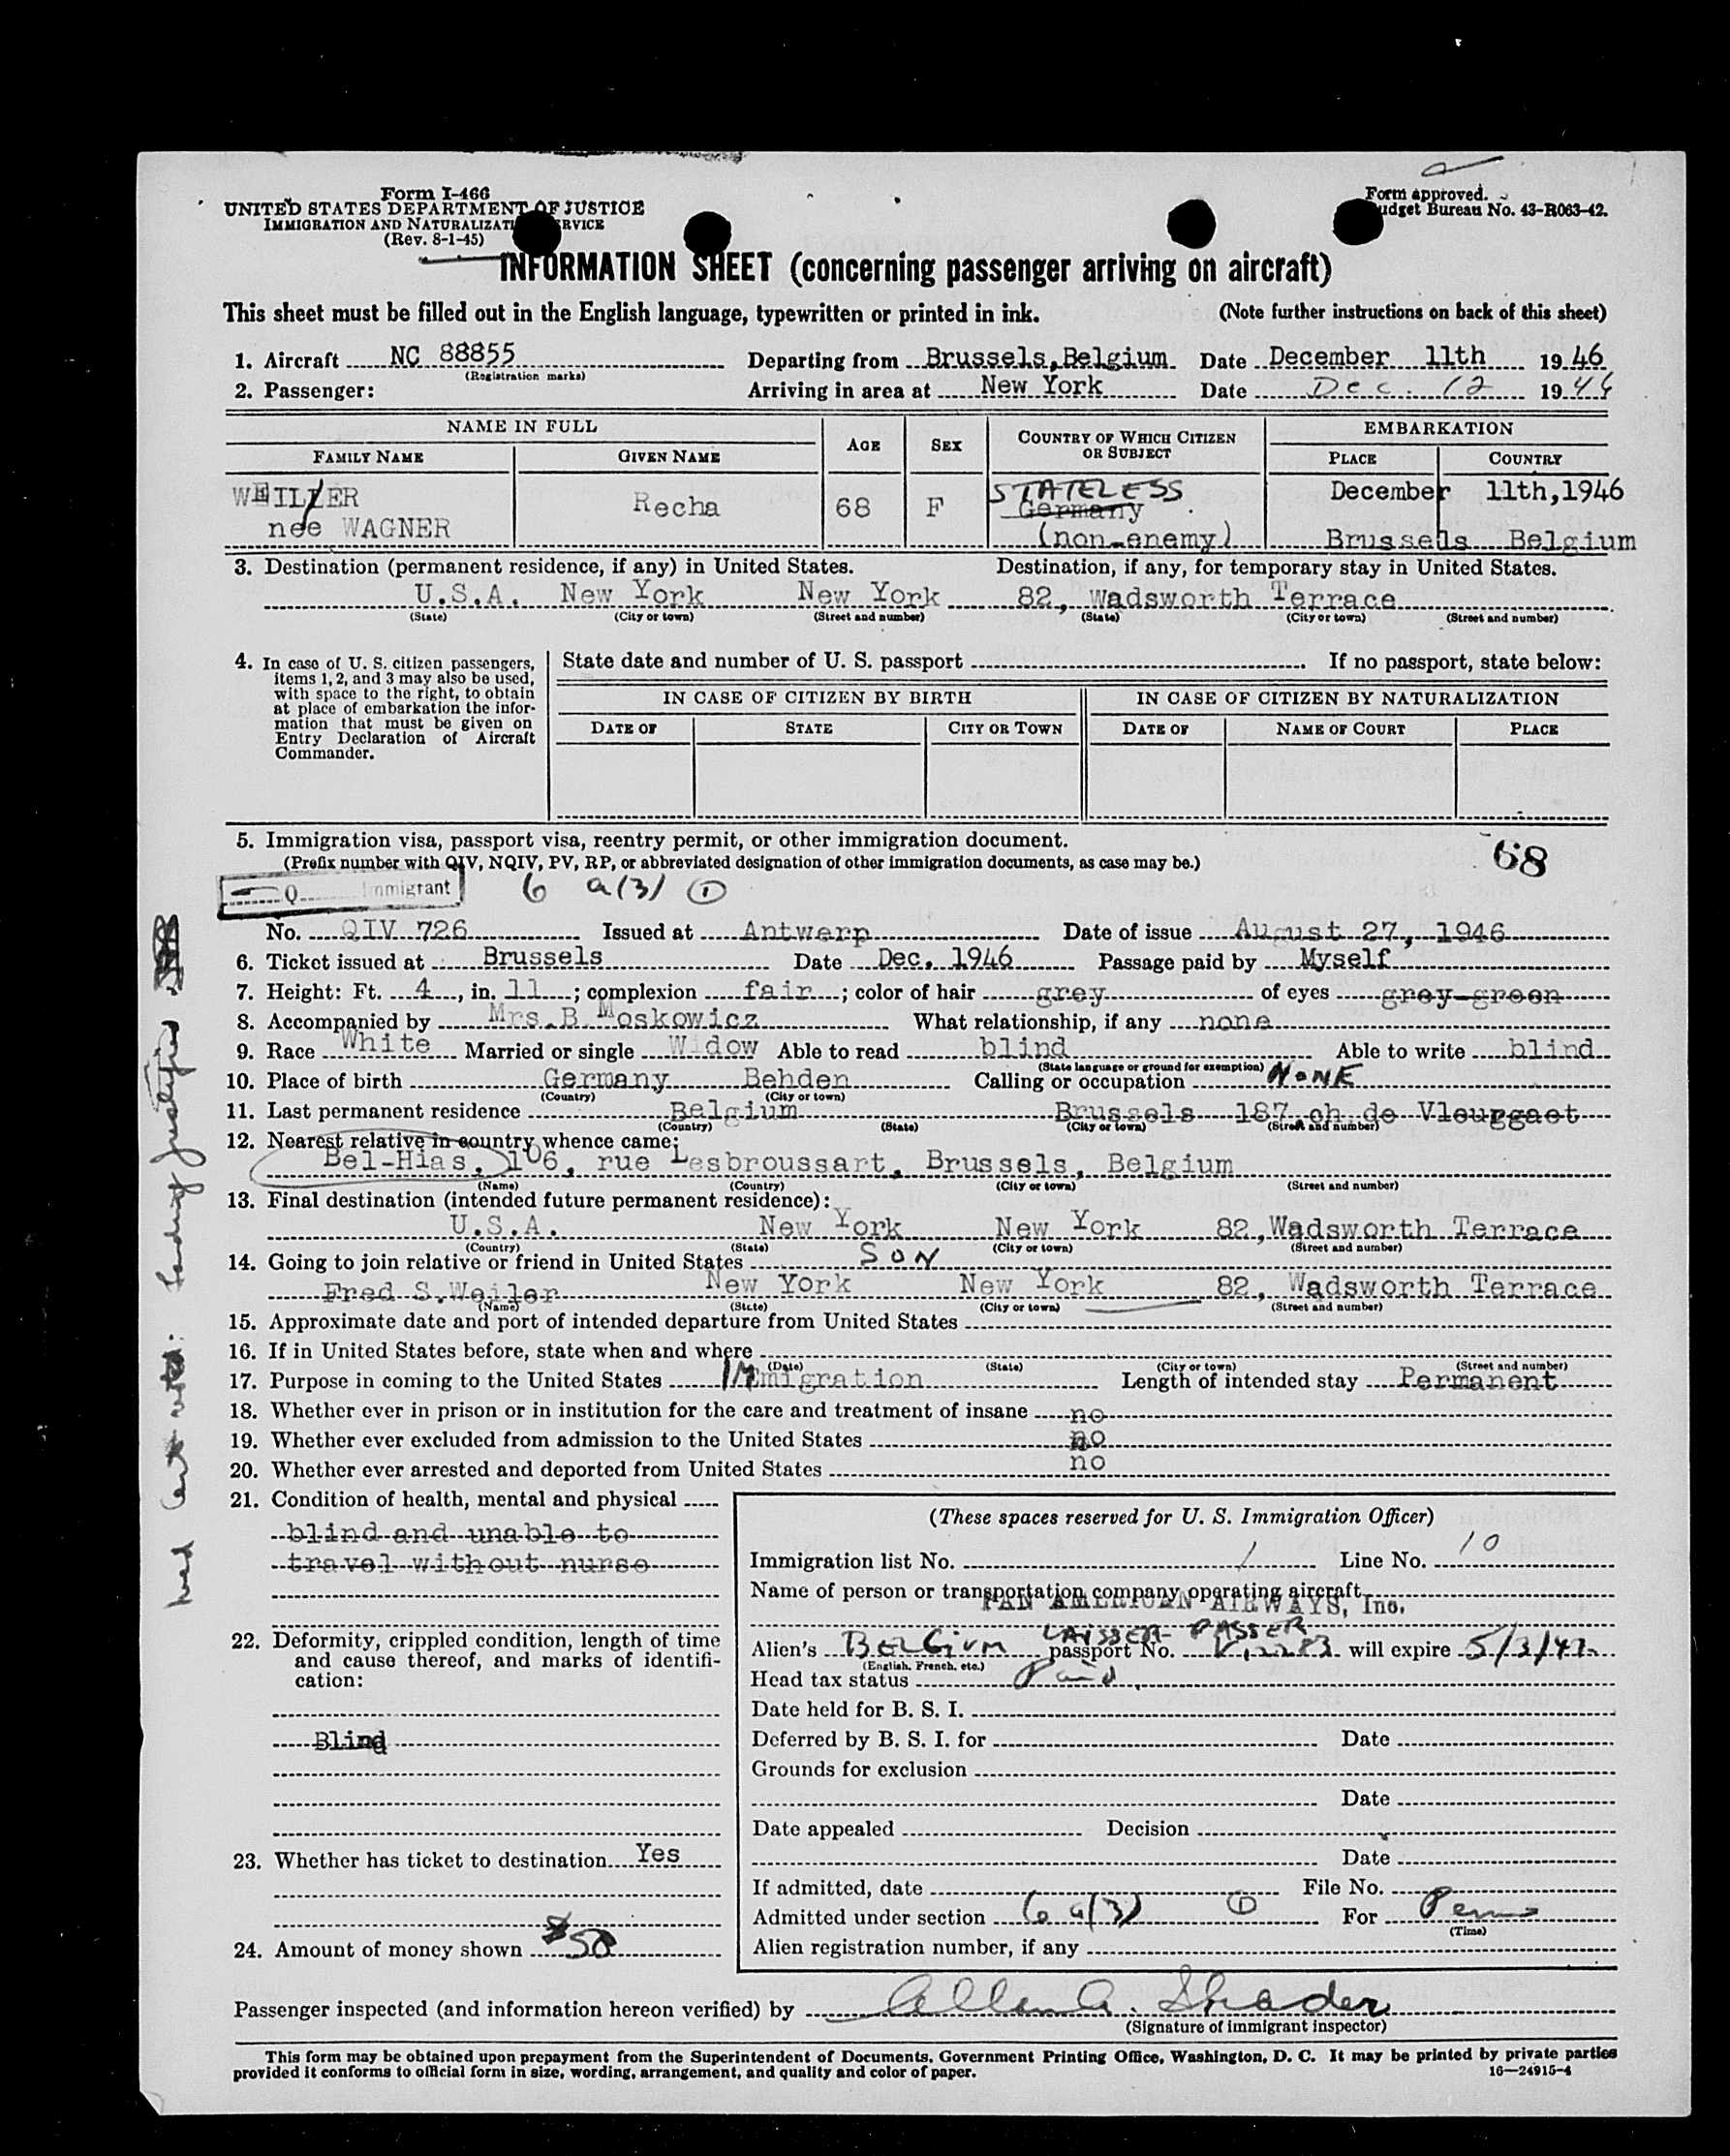 Form I-466
UNITED STATES DEPARTMENT OF JUSTICE
IMMIGRATION AND NATURALIZATI RVICE
(Rev. 8-1-45)
Form approved.
udget Bureau No. 43-R063-42.
INFORMATION SHEET (concerning passenger arriving on aircraft)
This sheet must be filled out in the English language, typewritten or printed in ink. (Note further instructions on back of this sheet)
1. Aircraft NC 88855 Departing from Brussels, Belgium Date December 11th 1946
(Registration marks)
2. Passenger: Arriving in area at New York Date Dec. 12 1946
NAME IN FULL AGE SEX COUNTRY OF WHICH CITIZEN OR SUBJECT EMBARKATION
FAMILY NAME GIVEN NAME PLACE COUNTRY
WEILLER Recha 68 F STATELESS December 11th, 1946
Germany
nee WAGNER (non-enemy) Brussels Belgium
3. Destination (permanent residence, if any) in United States. Destination, if any, for temporary stay in United States.
U.S.A. New York New York 82, Wadsworth Terrace
(State) (City or town) (Street and number) (State) (City or town) (Street and number)
4. In case of U. S. citizen passengers, items 1, 2, and 3 may also be used, with space to the right, to obtain at place of embarkation the information that must be given on Entry Declaration of Aircraft Commander.
State date and number of U. S. passport If no passport, state below:
IN CASE OF CITIZEN BY BIRTH IN CASE OF CITIZEN BY NATURALIZATION
DATE OF STATE CITY OR TOWN DATE OF NAME OF COURT PLACE
5. Immigration visa, passport visa, reentry permit, or other immigration document. 68
(Prefix number with QIV, NQIV, PV, RP, or abbreviated designation of other immigration documents, as case may be.)
Q Immigrant 6 a(3) 1
No. QIV 726 Issued at Antwerp Date of issue August 27, 1946
6. Ticket issued at Brussels Date Dec. 1946 Passage paid by Myself
7. Height: Ft. 4, in. 11; complexion fair; color of hair grey of eyes grey-green
8. Accompanied by Mrs. B. Moskowicz What relationship, if any none
9. Race White Married or single Widow Able to read blind Able to write blind
(State language or ground for exemption)
10. Place of birth Germany Behden Calling or occupation NONE
(Country) (City or town)
11. Last permanent residence Belgium Brussels 187 ch de Vleurgaet
(Country) (State) (City or town) (Street and number)
12. Nearest relative in country whence came:
Bel-Hias, 106, rue Lesbroussart, Brussels, Belgium
(Name) (Country) (City or town) (Street and number)
13. Final destination (intended future permanent residence):
U.S.A. New York New York 82, Wadsworth Terrace
(Country) (State) (City or town) (Street and number)
14. Going to join relative or friend in United States SON
Fred S. Weiler New York New York 82, Wadsworth Terrace
(Name) (State) (City or town) (Street and number)
15. Approximate date and port of intended departure from United States
16. If in United States before, state when and where
(Date) (State) (City or town) (Street and number)
17. Purpose in coming to the United States IMmigration Length of intended stay Permanent
18. Whether ever in prison or in institution for the care and treatment of insane no
19. Whether ever excluded from admission to the United States no
20. Whether ever arrested and deported from United States no
21. Condition of health, mental and physical
blind and unable to
travel without nurse
22. Deformity, crippled condition, length of time and cause thereof, and marks of identification:
Blind
23. Whether has ticket to destination Yes
24. Amount of money shown $50
(These spaces reserved for U. S. Immigration Officer)
Immigration list No. 1 Line No. 10
Name of person or transportation company operating aircraft
PAN AMERICAN AIRWAYS, Inc.
LAISSER-PASSER
Alien's BELGIUM passport No. will expire 5/3/47
(English, French, etc.)
Head tax status Paid
Date held for B. S. I.
Deferred by B. S. I. for Date
Grounds for exclusion
Date
Date appealed Decision
Date
If admitted, date File No.
Admitted under section 6 a(3) 1 For Perm
(Time)
Alien registration number, if any
Passenger inspected (and information hereon verified) by Allen A. Shader
(Signature of immigrant inspector)
This form may be obtained upon prepayment from the Superintendent of Documents, Government Printing Office, Washington, D. C. It may be printed by private parties
provided it conforms to official form in size, wording, arrangement, and quality and color of paper. 16—24915-4